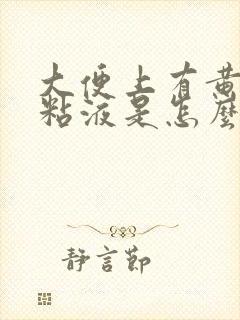 大便上有黄
粘液是怎麼
静言節